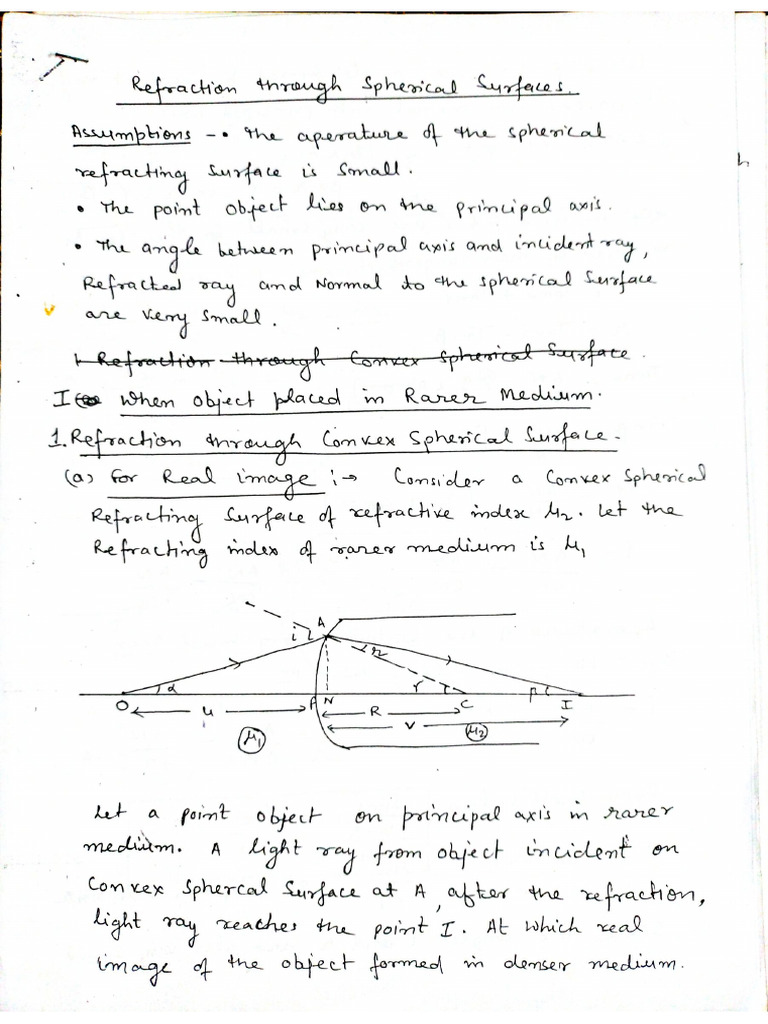 Refraction through Spherical Surfaces.
Assumptions - • The aperature of the spherical
refracting surface is small.
• The point object lies on the principal axis.
• The angle between principal axis and incident ray,
Refracted ray and Normal to the spherical surface
are very small.
1. Refraction through Convex spherical Surface.
I when object placed in Rarer Medium.
1. Refraction through Convex Spherical Surface-
(a) For Real image :→ Consider a Convex Spherical
Refracting Surface of refractive index μ2. Let the
Refracting index of rarer medium is μ1
A
i
r
α γ β
O P N C I
u R
v
μ1 μ2
Let a point object on principal axis in rarer
medium. A light ray from object incident on
Convex Sphercal Surface at A, after the refraction,
light ray reaches the point I. At which real
image of the object formed in denser medium.